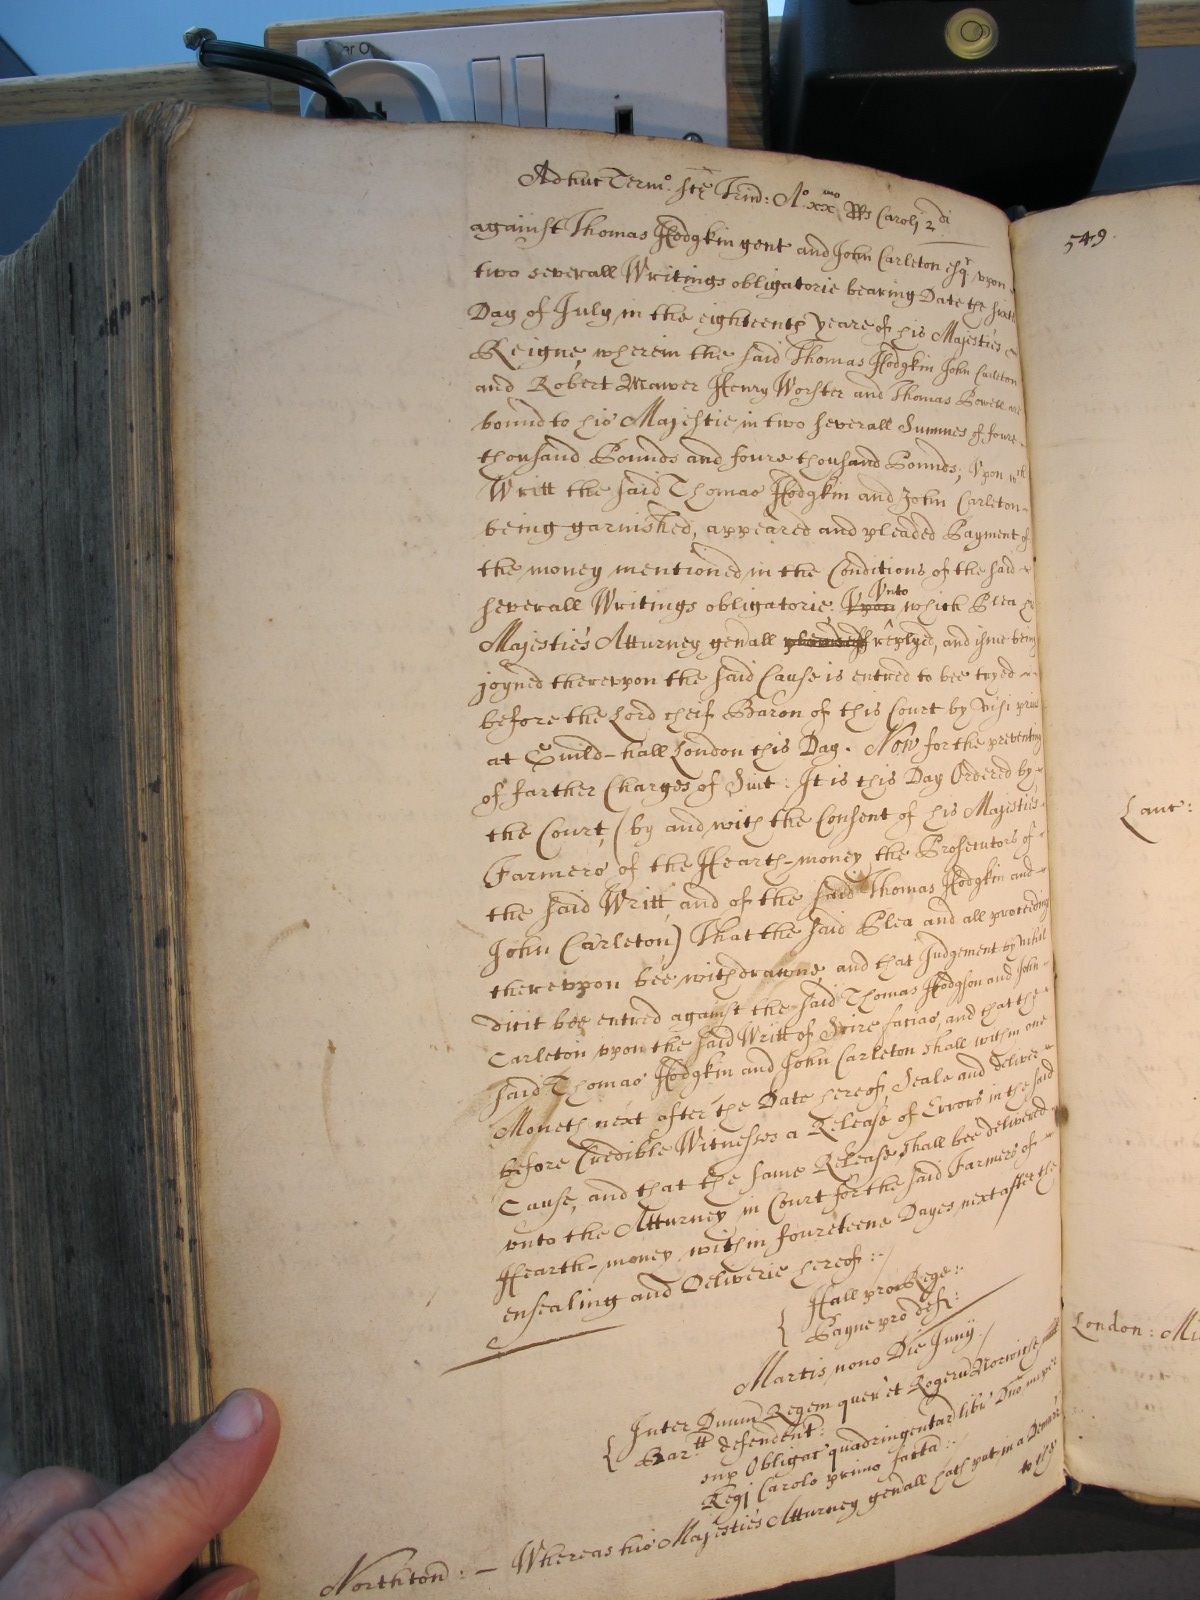 Adhuc Termo. Ste Trind: Ao. xxmo. Rs Caroli 2di
549.
against Thomas Hodgkin gent and John Carleton esqr, vpon
two severall Writings obligatorie bearing Date the sixth
Day of July in the eighteenth yeare of his Majesties
Reigne, wherein the said Thomas Hodgkin John Carleton
and Robert Mawer Henry Worster and Thomas Powell are
bound to his Majestie in two severall Summes of foure
thousand Pounds and foure thousand Pounds; Vpon wch
Writt the said Thomas Hodgkin and John Carleton
being garnished, appeared and pleaded Payment of
the money mentioned in the Conditions of the said
severall Writings obligatorie. Vpon Vnto which Plea
Majesties Atturney genall replyed, and issue being
joyned therevpon the said Cause is entred to bee tryed
before the Lord cheif Baron of this Court by Nisi prius
at Guild-hall London this Day. Now for the preventing
of farther Charges of Suit: It is this Day Ordered by
the Court, (by and with the Consent of his Majesties
Farmers of the Hearth-money, the Prosecutors of
the said Writt, and of the said Thomas Hodgkin and
John Carleton) That the said Plea and all proceeding
therevpon bee withdrawne, and that Judgement by nihil
dicit bee entred against the said Thomas Hodgson and John
Carleton vpon the said Writt of Scire facias, and that the
said Thomas Hodgkin and John Carleton shall within one
Moneth next after the Date hereof, Seale and deliver
before Credible Witnesses a Release of Errors in the said
Cause, and that the same Release shall bee delivered
vnto the Atturney in Court for the said Farmers of
Hearth-money within fourteene Dayes next after the
ensealing and Deliverie hereof:
Hall pro Rege:
Payne pro def:
Martis nono Die Junij
Inter Dnum Regem quer' et Rogeru Norwich
Bartt defendent:
sup Obligac' quadringentar libr' Dno nuper
Regi Carolo primo facta:
Northton: - Whereas his Majesties Atturney genall hath put in a Demurr'
to the
Lanc:
London: Mi